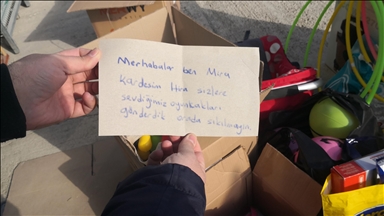 Merhabalar ben Mira
Kardeşim Hira sizlere
sevdiğimiz oyuncakları
gönderdik orada sıkılmayın